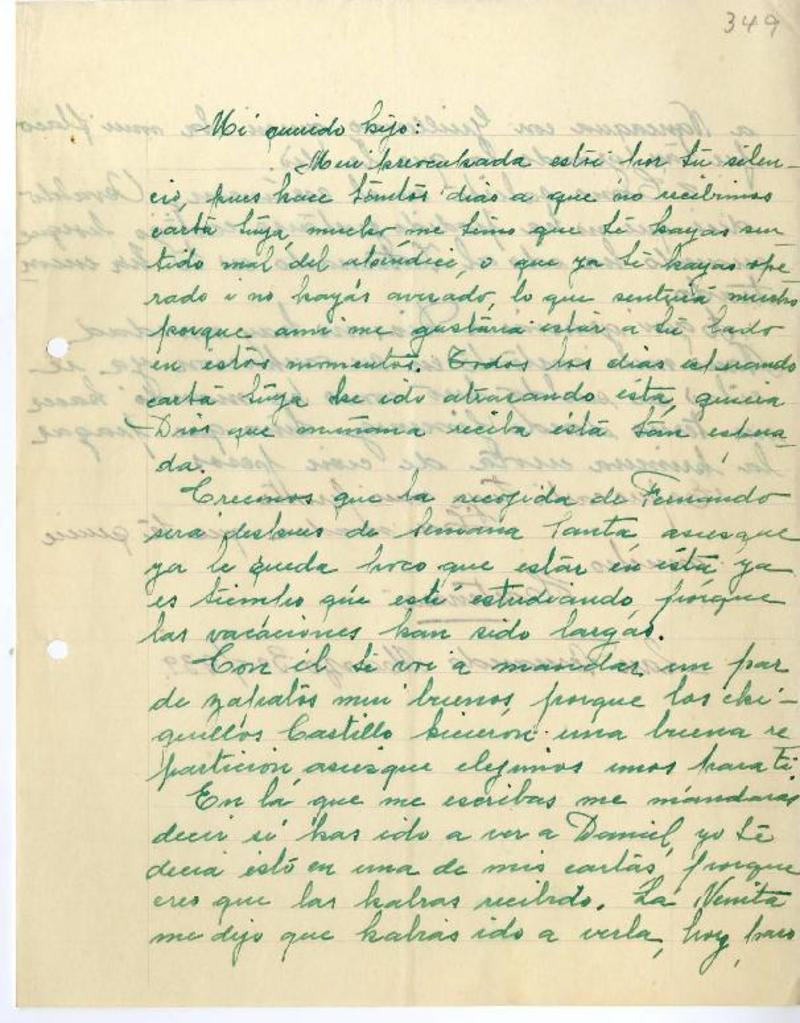 349
Mi querido hijo:
Mui preocupada estoi por tu silen-
cio, pues hace tantos dias a que no recibimos
carta tuya, mucho me temo que te hayas sen
tido mal del apéndice, o que ya te hayas ope
rado i no hayas avisado, lo que sentiria mucho
porque ami me gustaria estar a tu lado
en estos momentos. Todos los dias esperando
carta tuya he ido atrasando esta, quiera
Dios que mañana reciba ésta tan espera
da.
Creemos que la recojida de Fernando
sera despues de Semana Santa, asiesque
ya le queda poco que estar en ésta, ya
es tiempo que esté estudiando, porque
las vacaciones han sido largas.
Con él te voi a mandar un par
de zapatos mui buenos, porque los chi-
quillos Castillo hicieron una buena re
particion, asiesque elejimos unos para ti.
En la que me escribas me mandarás
decir si has ido a ver a Daniel, yo te
decia esto en una de mis cartas, porque
creo que las habras recibido. La Nenita
me dijo que habias ido a verla, hoy paso